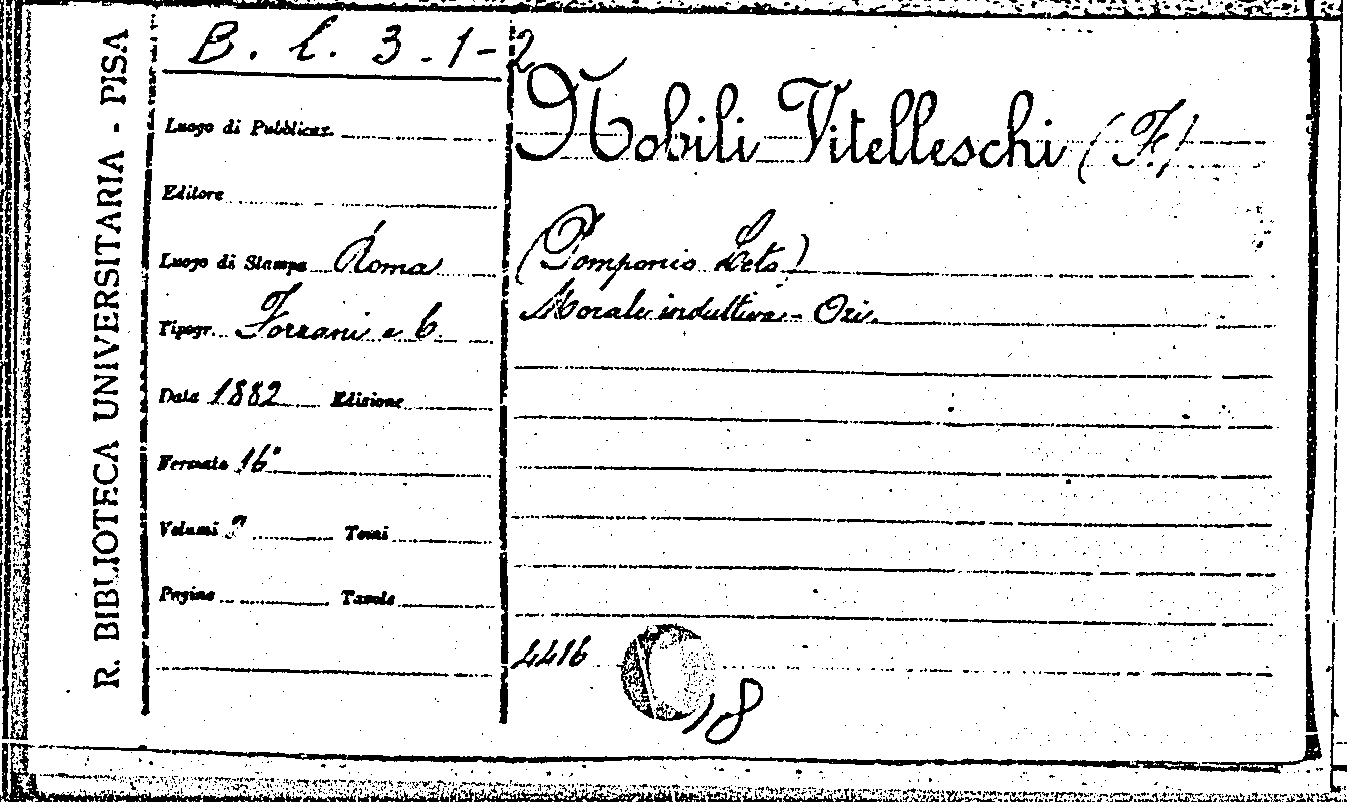 R. BIBLIOTECA UNIVERSITARIA - PISA
B. l. 3. 1-2
Luogo di Pubblicaz.
Editore
Luogo di Stampa Roma
Tipogr. Forzani e C.
Data 1882 Edizione
Formato 16°
Volumi 2 Tomi
Pagine Tavole
Nobili Vitelleschi (F.)
(Pomponio Leto)
Morale induttiva -
4416
8